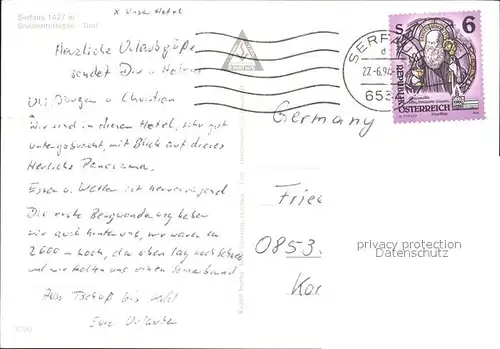 Serfaus 1427 m
x Unser Hotel
Herzliche Urlaubsgrüße
sendet Dir u Helmut
Uli Jürgen u Christian
Wir sind in diesem Hotel, sehr gut
untergebracht, mit Blick auf dieses
Herrliche Panorama.
Essen u. Wetter ist hervorragend
Die erste Bergwanderung haben
wir auch hinter uns, wir waren ca
2600 m hoch, da oben lag noch Schnee
und wir holten uns einen Sonnenbrand
Zum bis bald
Eure Urlauber
SERF
27.-6.94
653
6
REPUBLIK
ÖSTERREICH
Germany
Frie
0853.
Kor
privacy protection
Datenschutz